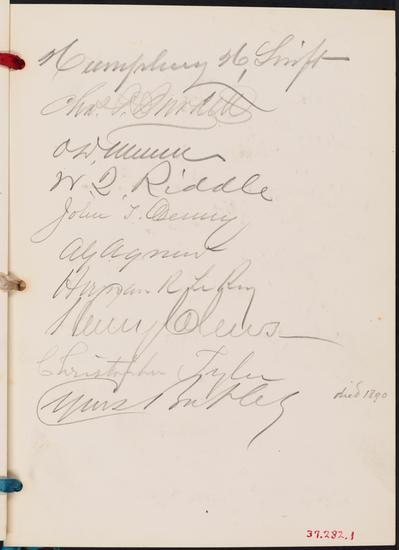 Humphrey H. Swift
Chas. P. Burdett
O.D. Munn
W. Q. Riddle
John T. Denny
A G Agnew
Herman R Le Roy
Henry Clews
Christopher Tyler
Cyrus Butler
died 1890
37.282.1